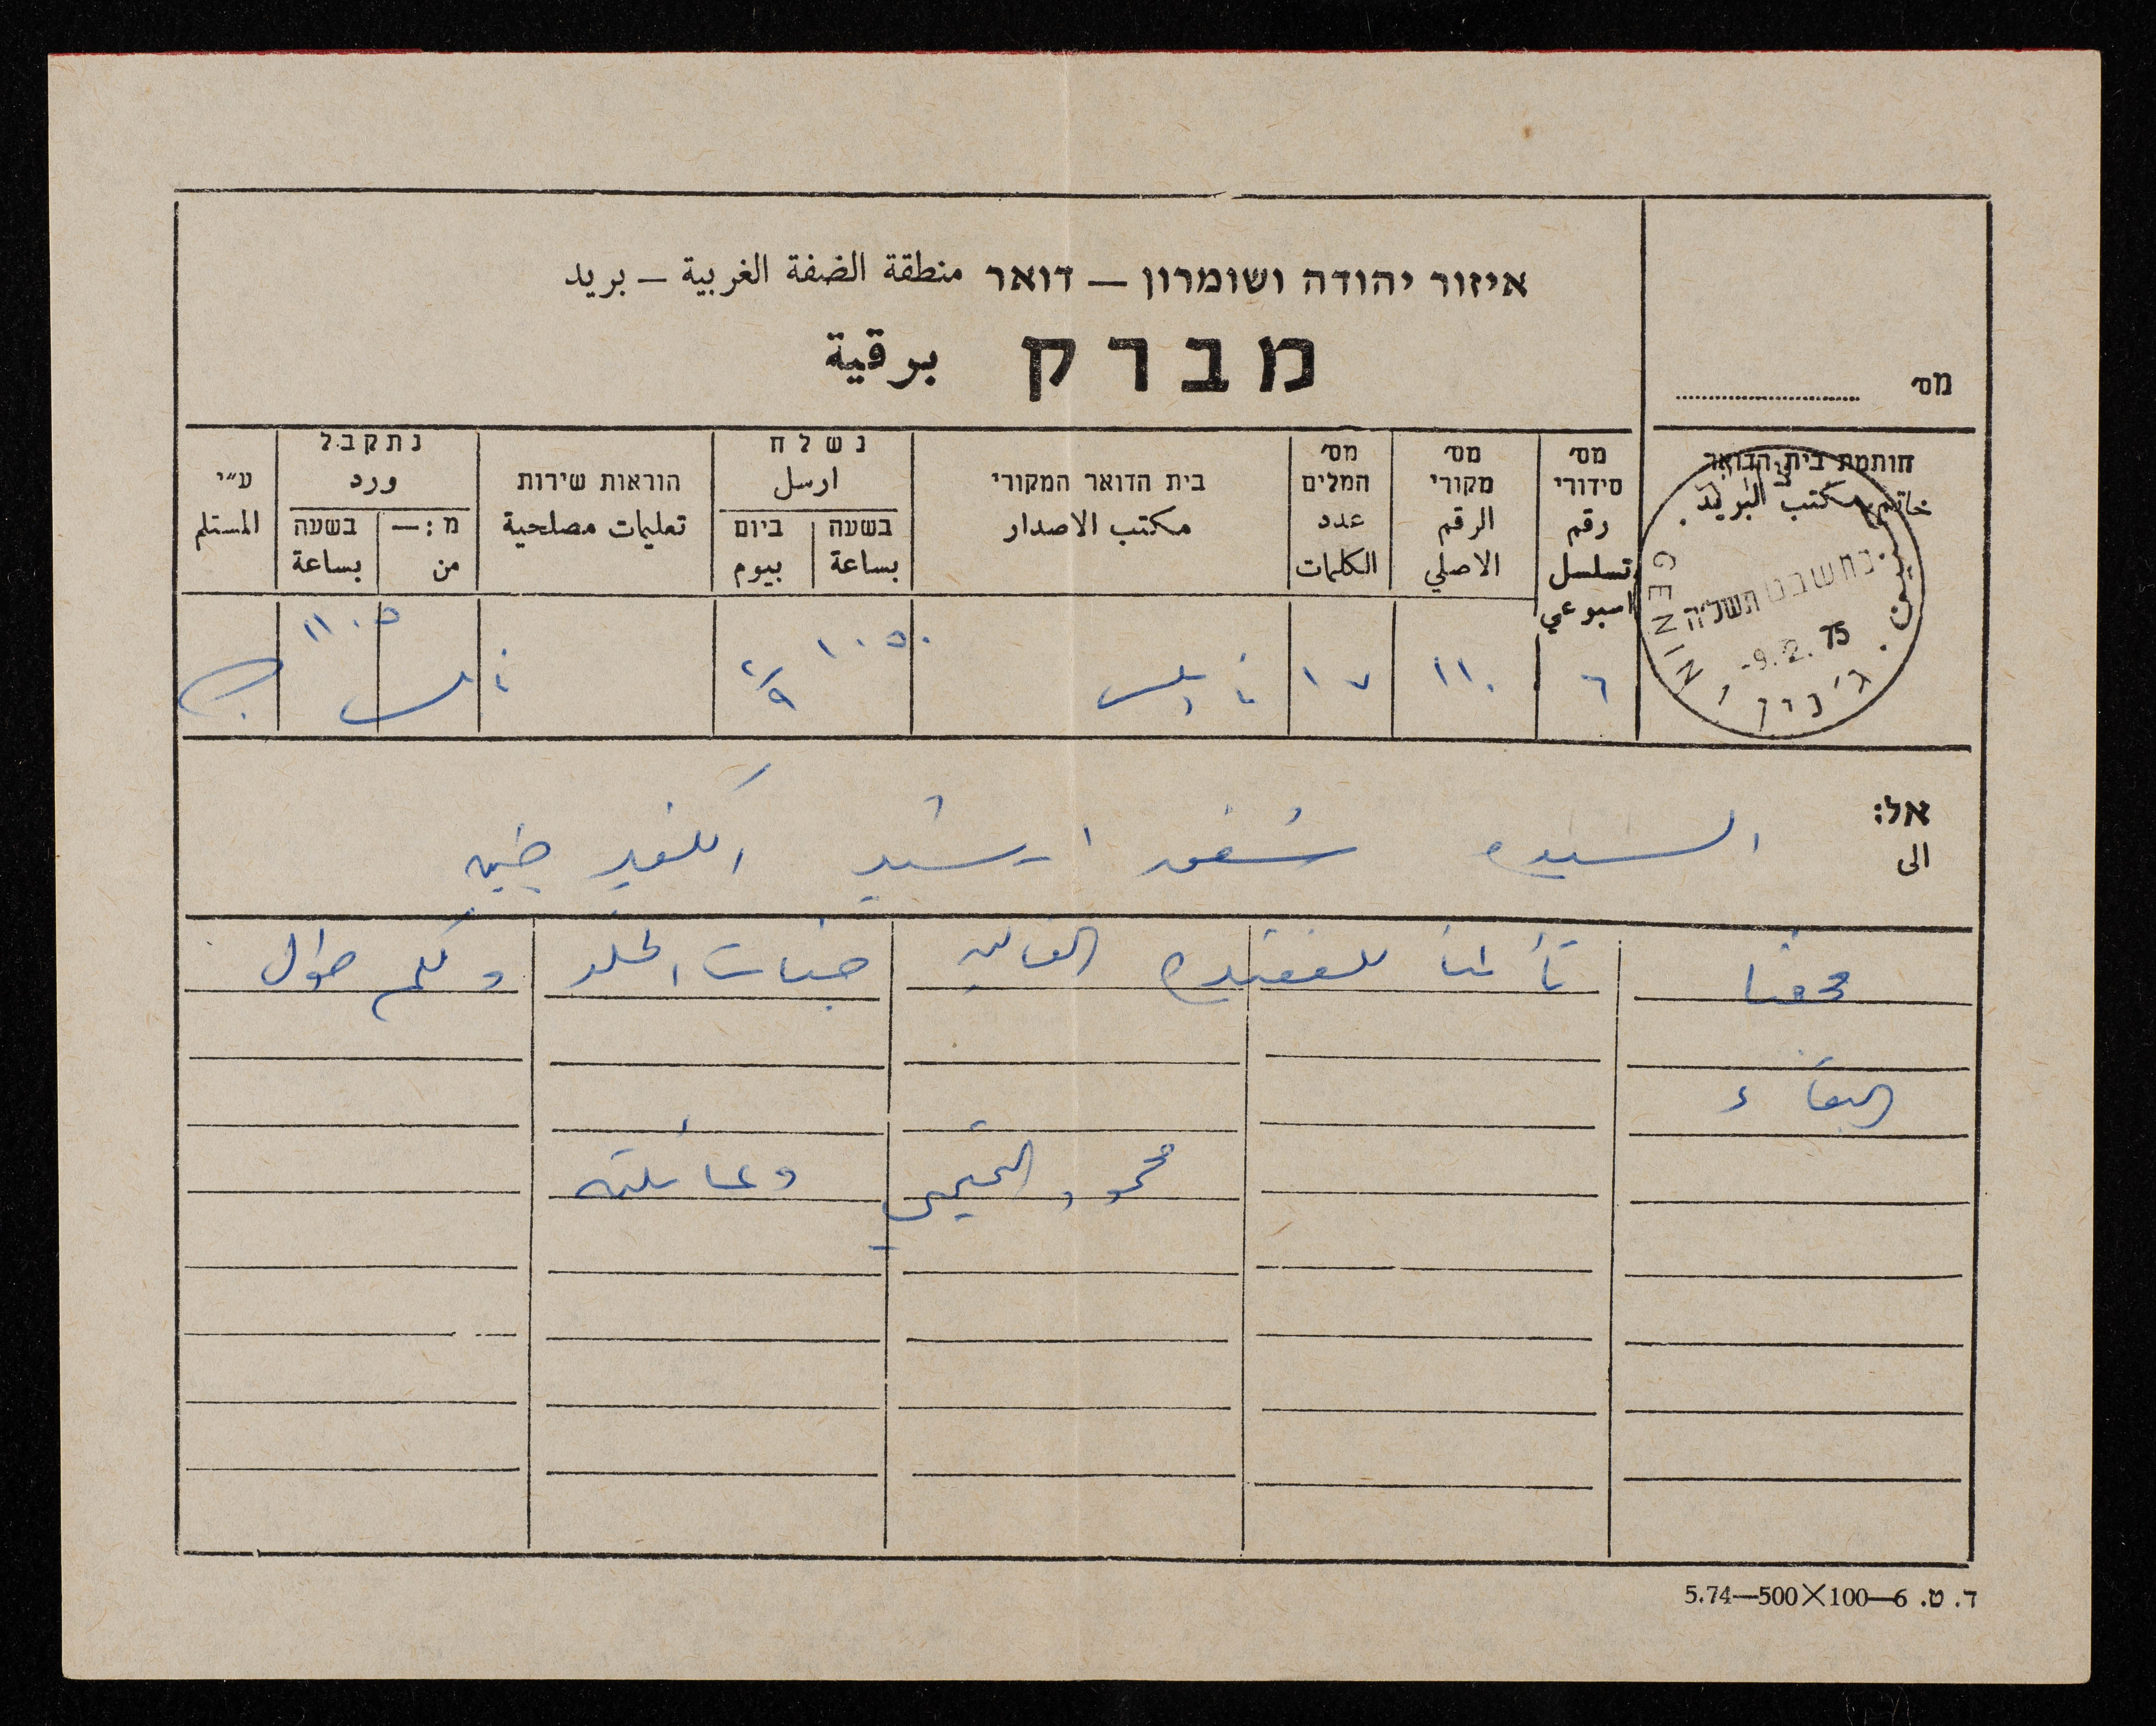 איזור יהודה ושומרון – דואר منطقة الضفة الغربية – بريد
מברק برقية
מס׳
חותמת בית הדואר
خاتم مكتب البريد
GENIN
כח שבט תשל״ה
-9.2.75
ג׳נין
מס׳ סידורי رقم تسلسل اسبوعي
מס׳ מקורי الرقم الاصلي
מס׳ המלים عدد الكلمات
בית הדואר המקורי مكتب الاصدار
נשלח ارسل
בשעה بساعة
ביום بيوم
הוראות שירות تعليمات مصلحية
נתקבל ورد
מ:— من
בשעה بساعة
ע״י المستلم
٦ ١١٠ ١٧ نابلس ١٠٥٠ ٩/٢ نابلس ١١٠٥
אל:
الى
السيده ارشيد الكفير جنين
تأثرنا للفقيده الغاليه جنات الخلد ولكم طوال
البقاء
محمود التميمي وعائلته
ד. ט. 6—100×500—5.74